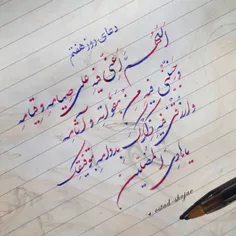 دعای روز هفتم
اللهم اعنی فیه علی صیامه و قیامه
و جنبنی فیه من هفواته و آثامه
وارزقنی فیه ذکرک بدوامه بتوفیقک
یا هادی المضلین